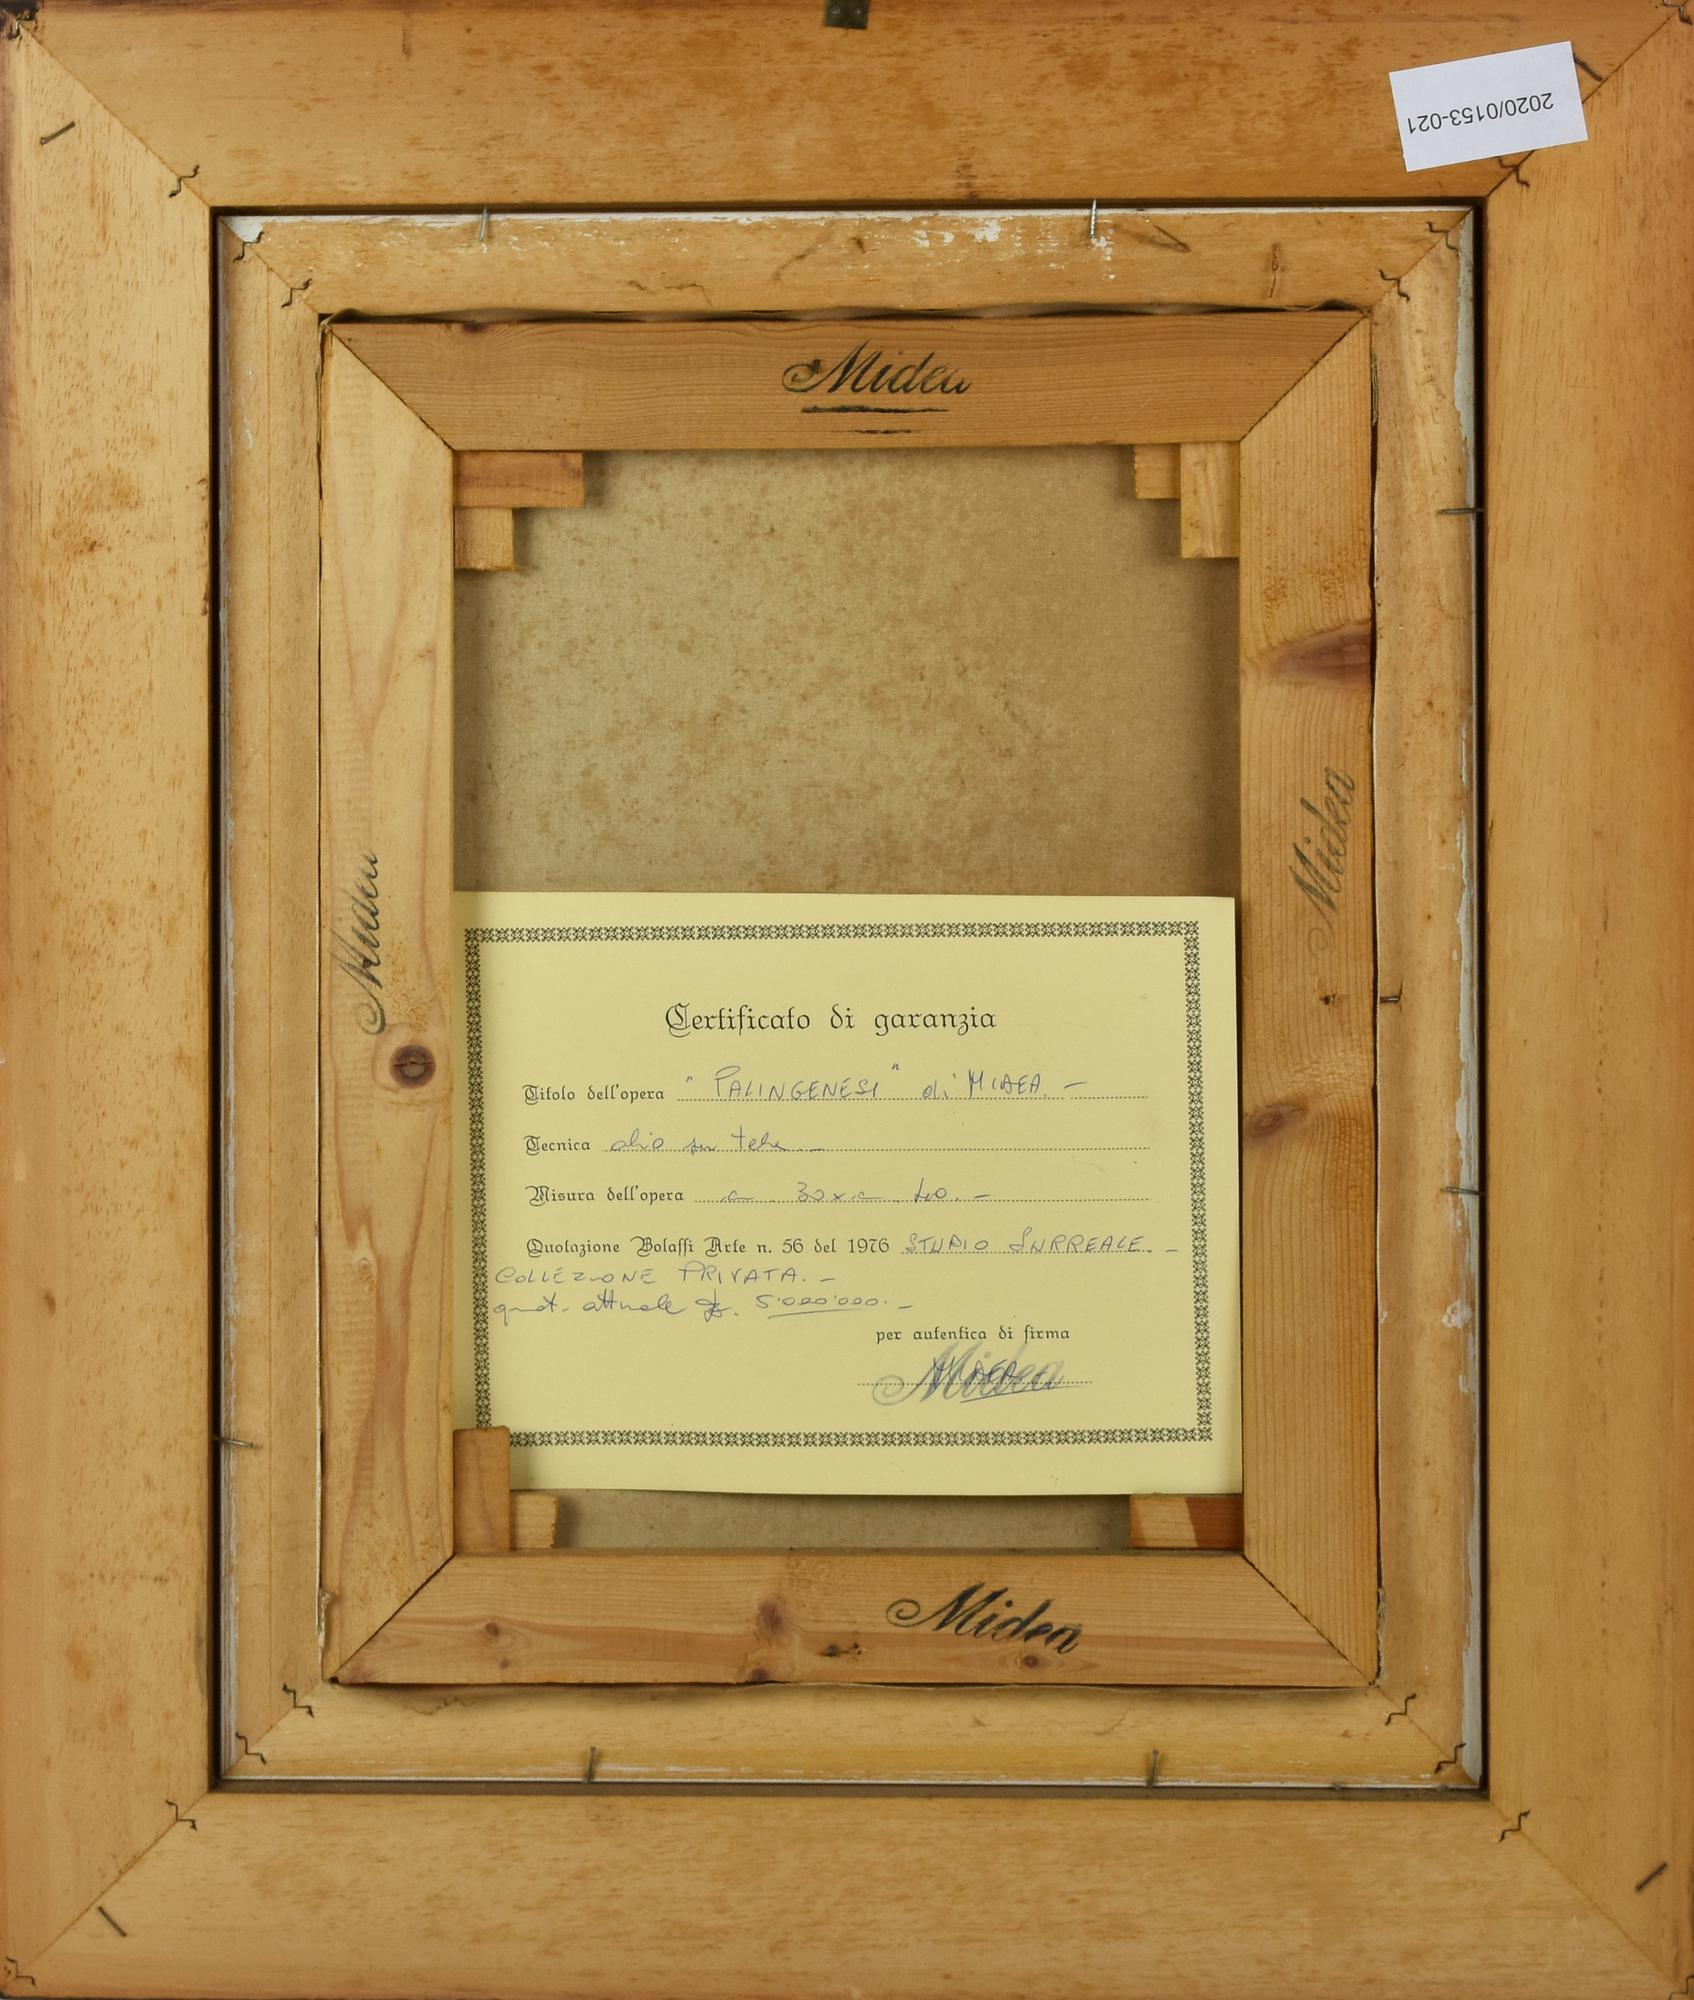 2020/0153-021
Midea
Midea
Midea
Certificato di garanzia
Titolo dell'opera "PALINGENESI" di MIDEA. -
Tecnica olio su tela -
Misura dell'opera 30 x 40. -
Quotazione Bolaffi Arte n. 56 del 1976 STUDIO SURREALE. -
COLLEZIONE PRIVATA. -
quot. attuale £. 5'000'000. -
per autentica di firma
Midea
MIDEA
Midea